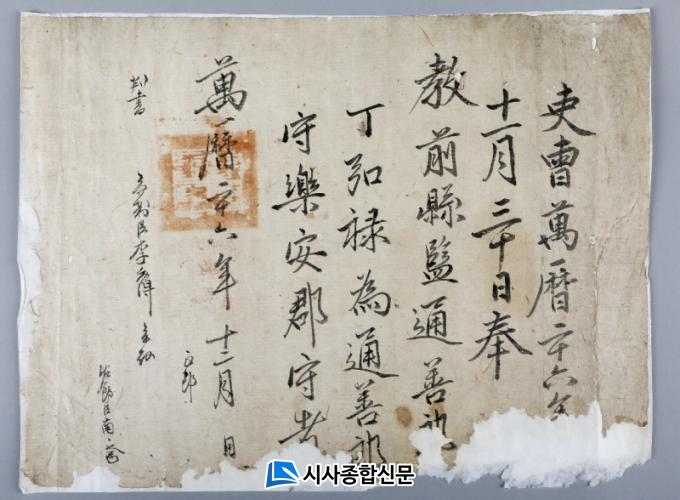 吏曹萬曆二十六年
十一月三十日奉
教前縣監通善郎
丁弘禄為通善郎
守樂安郡守者
萬曆二十六年十二月 日
判書 臣李
正郎
臣南
시사종합신문